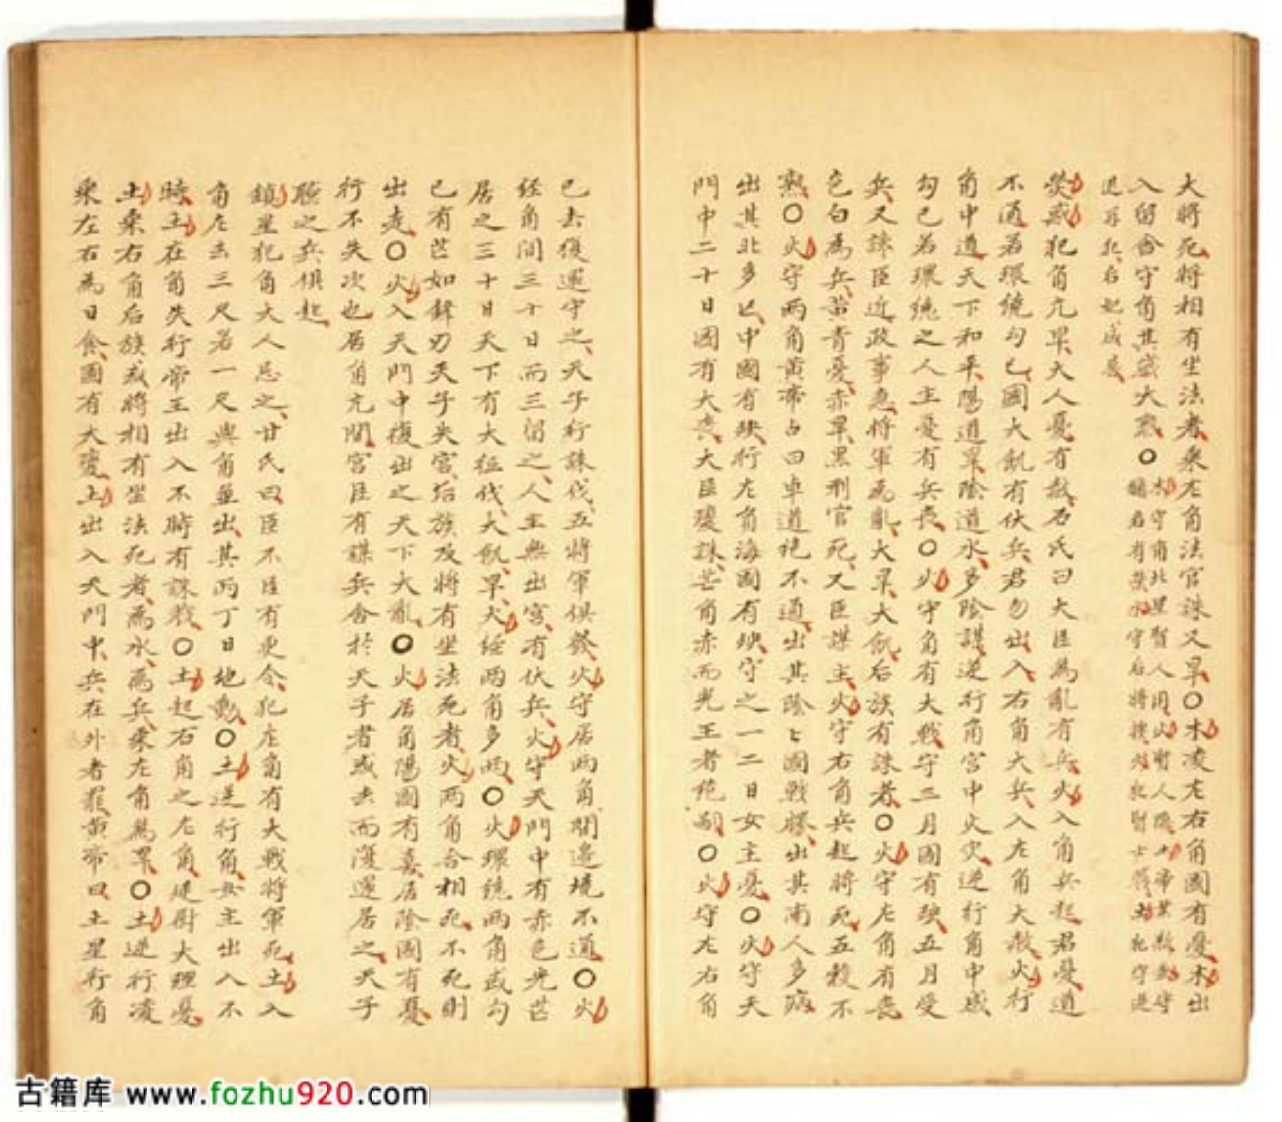 大將死將相有坐法者乘左角法官誅又旱〇木凌左右角國有憂木出
入留舍守角其歲大惡〇木守角北里賢人用火
熒惑犯角亢旱大人憂有赦石氏曰大臣為亂有兵火入角兵起君憂道
不通若環繞勾已國大飢有伏兵君勿出入右角大兵入左角大赦火行
角中道天下和平陽道旱陰道水多陰謀逆行角宮中火灾逆行角中或
勾已若環繞之人主憂有兵喪〇火守角有大戰守三月國有殃五月受
兵又諫臣近政事急將軍為亂大旱大飢后族有誅者〇火守左角有喪
色白為兵黃青憂赤旱黑刑官死又臣謀主火守右角兵起將死五穀不
熟〇火守兩角黃帝占曰車道絕不通出其陰〻國戰勝出其南人多病
出其北多已中國有殃行左角海國有殃守之一二日女主憂〇火守天
門中二十日國有大喪大臣瓊誅芒角赤而光王者絕嗣〇火守左右角
已去復還守之天子行誅伐五將軍俱發火守居兩角間邊境不通〇火
經角間三十日而三留之人主無出宮有伏兵火守天門中有赤色光芒
居之三十日天下有大征伐大飢旱火經兩角多雨〇火環繞兩角或勾
已有芒如鋒刃天子失宮后族及將有坐法死者火兩角合相死不死則
出走〇火入天門中復出之天下大亂〇火居角陽國有喜居陰國有憂
行不失次也居角亢間宮臣有謀兵舍於天子者或去而復還居之天子
之兵俱起
鎮星犯角大人忌之甘氏曰臣不臣有更令犯左角有大戰將軍死土入
角左去三尺若一尺與角並出其丙丁日地動〇土逆行角女主出入不
時土在角失行帝王出入不時有誅戮〇土起右角之左角廷尉大理憂
土乘右角后族或將相有坐法死者為水為兵乘左角為旱〇土逆行凌
乘左右為日食國有大喪土出入天門中兵在外者罷黃帝曰土星行角
古籍库 www.fozhu920.com